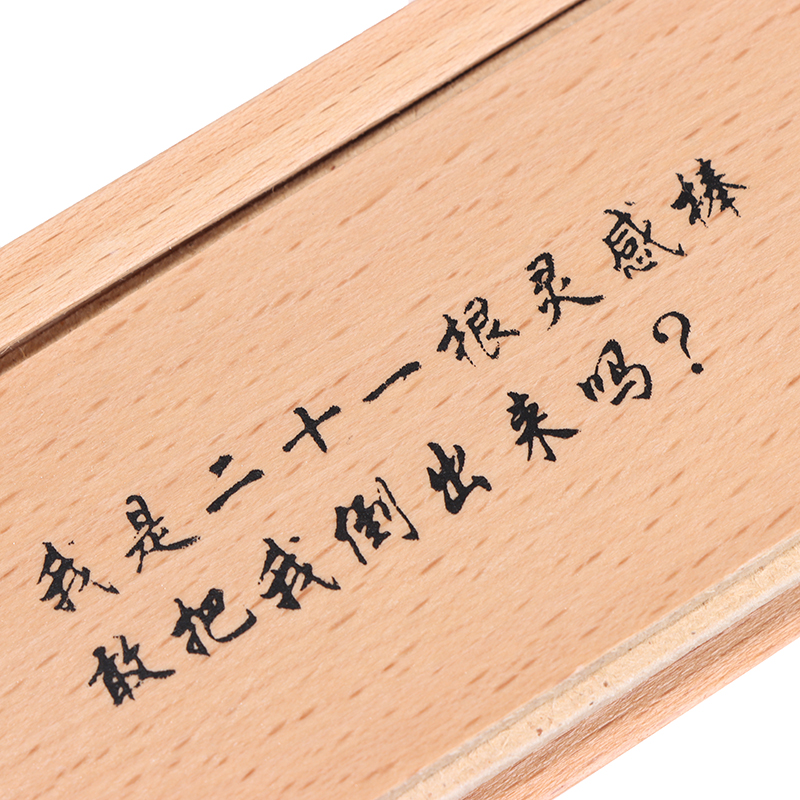 我是二十一根灵感棒
敢把我倒出来吗?